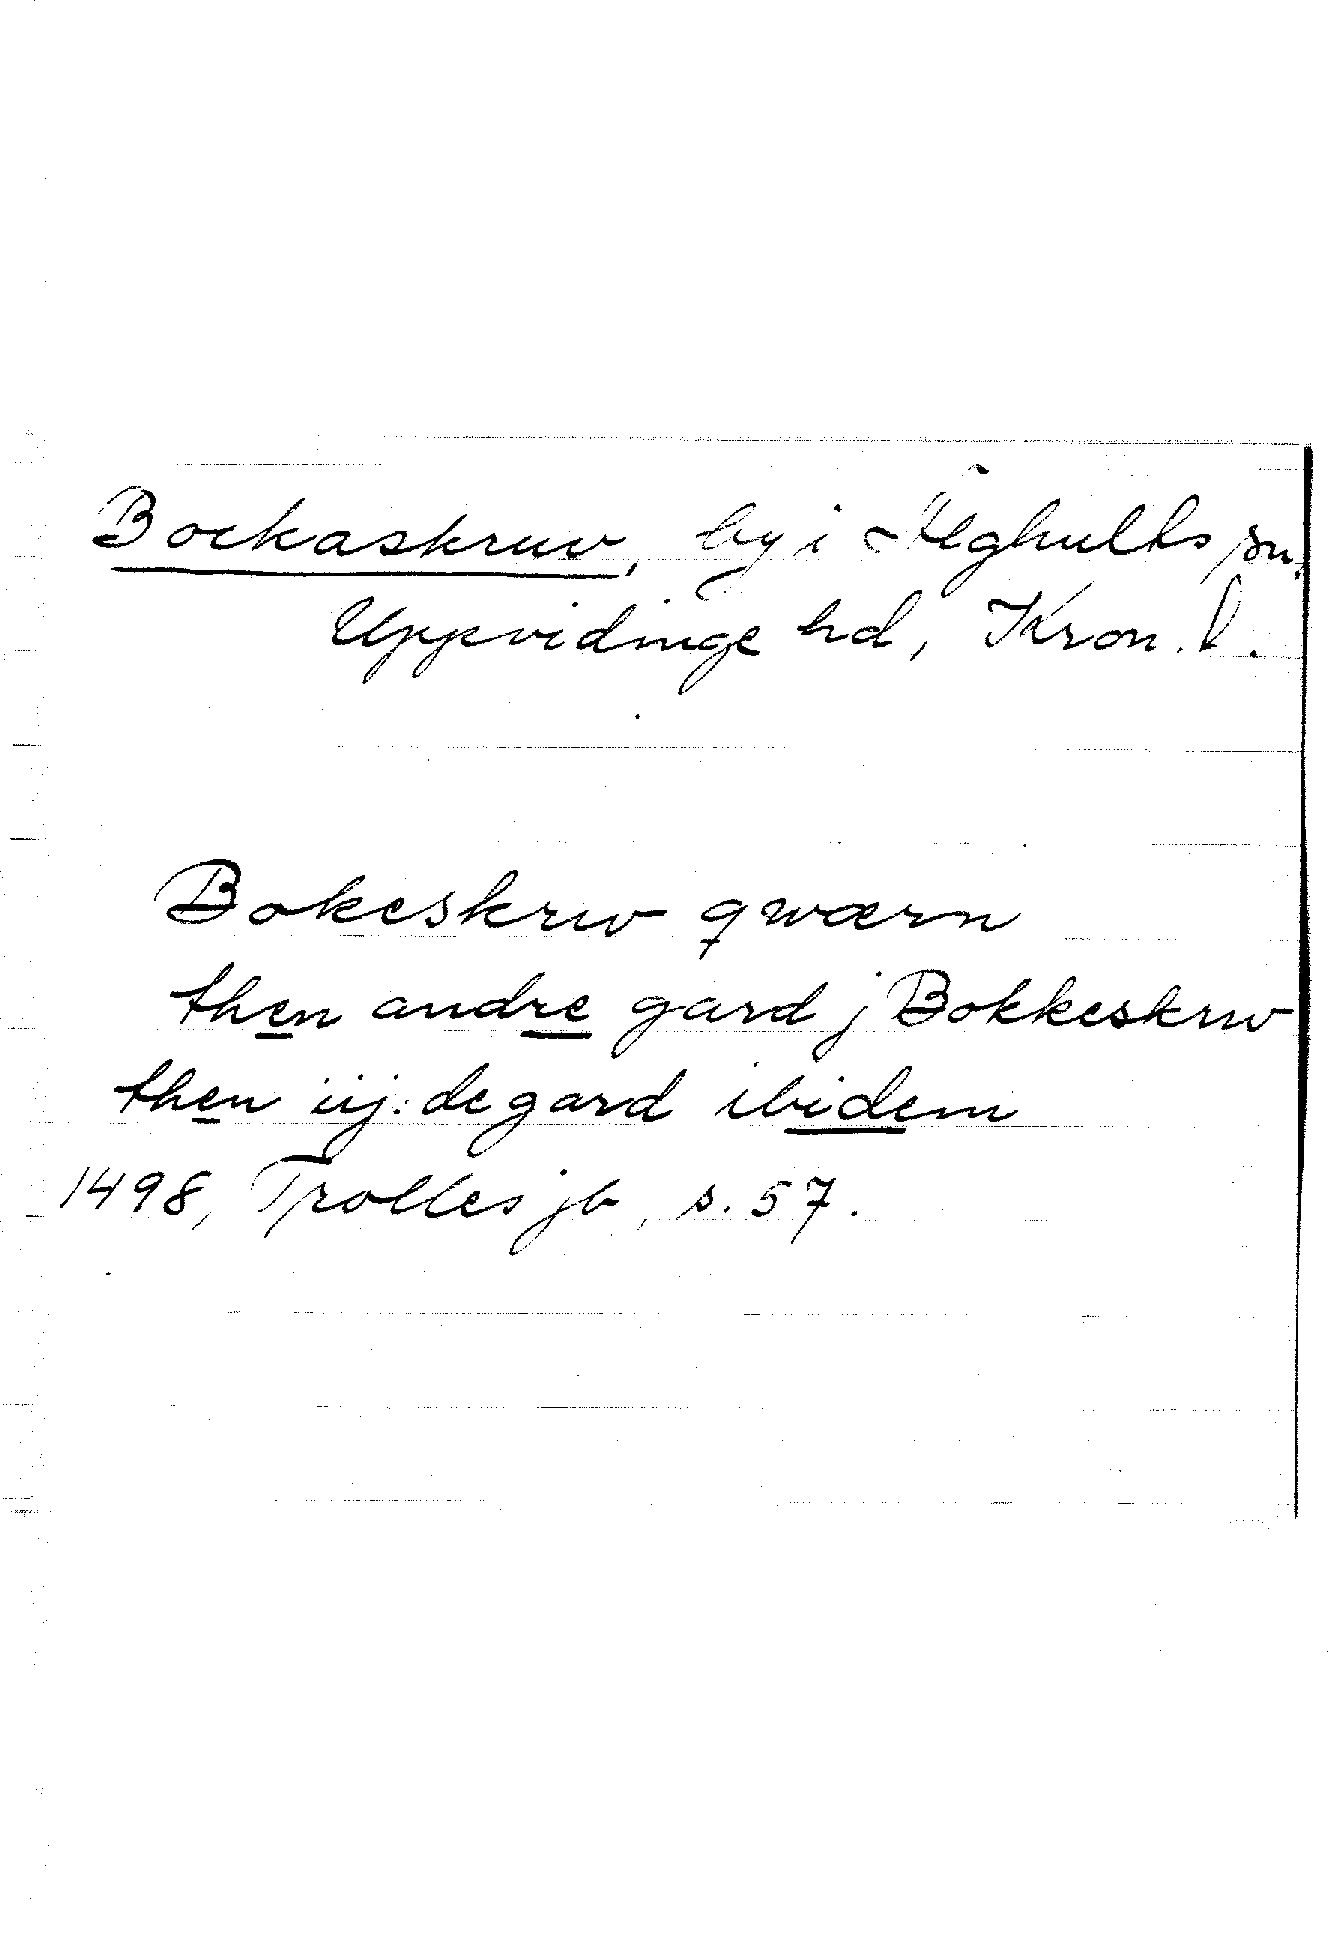 Bockaskruv, by i Älghults sn.
Uppvidinge hd, Kron. l.
Bokeskrw qwærn
then andre gard j Bokkeskrw
then iij:de gard ibidem
1498, Trolles jb, s. 57.